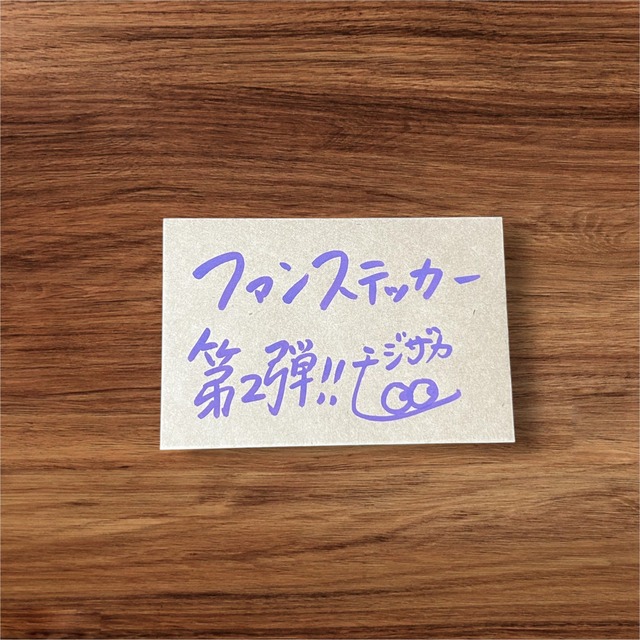 ファンステッカー
第2弾!! チジザカ